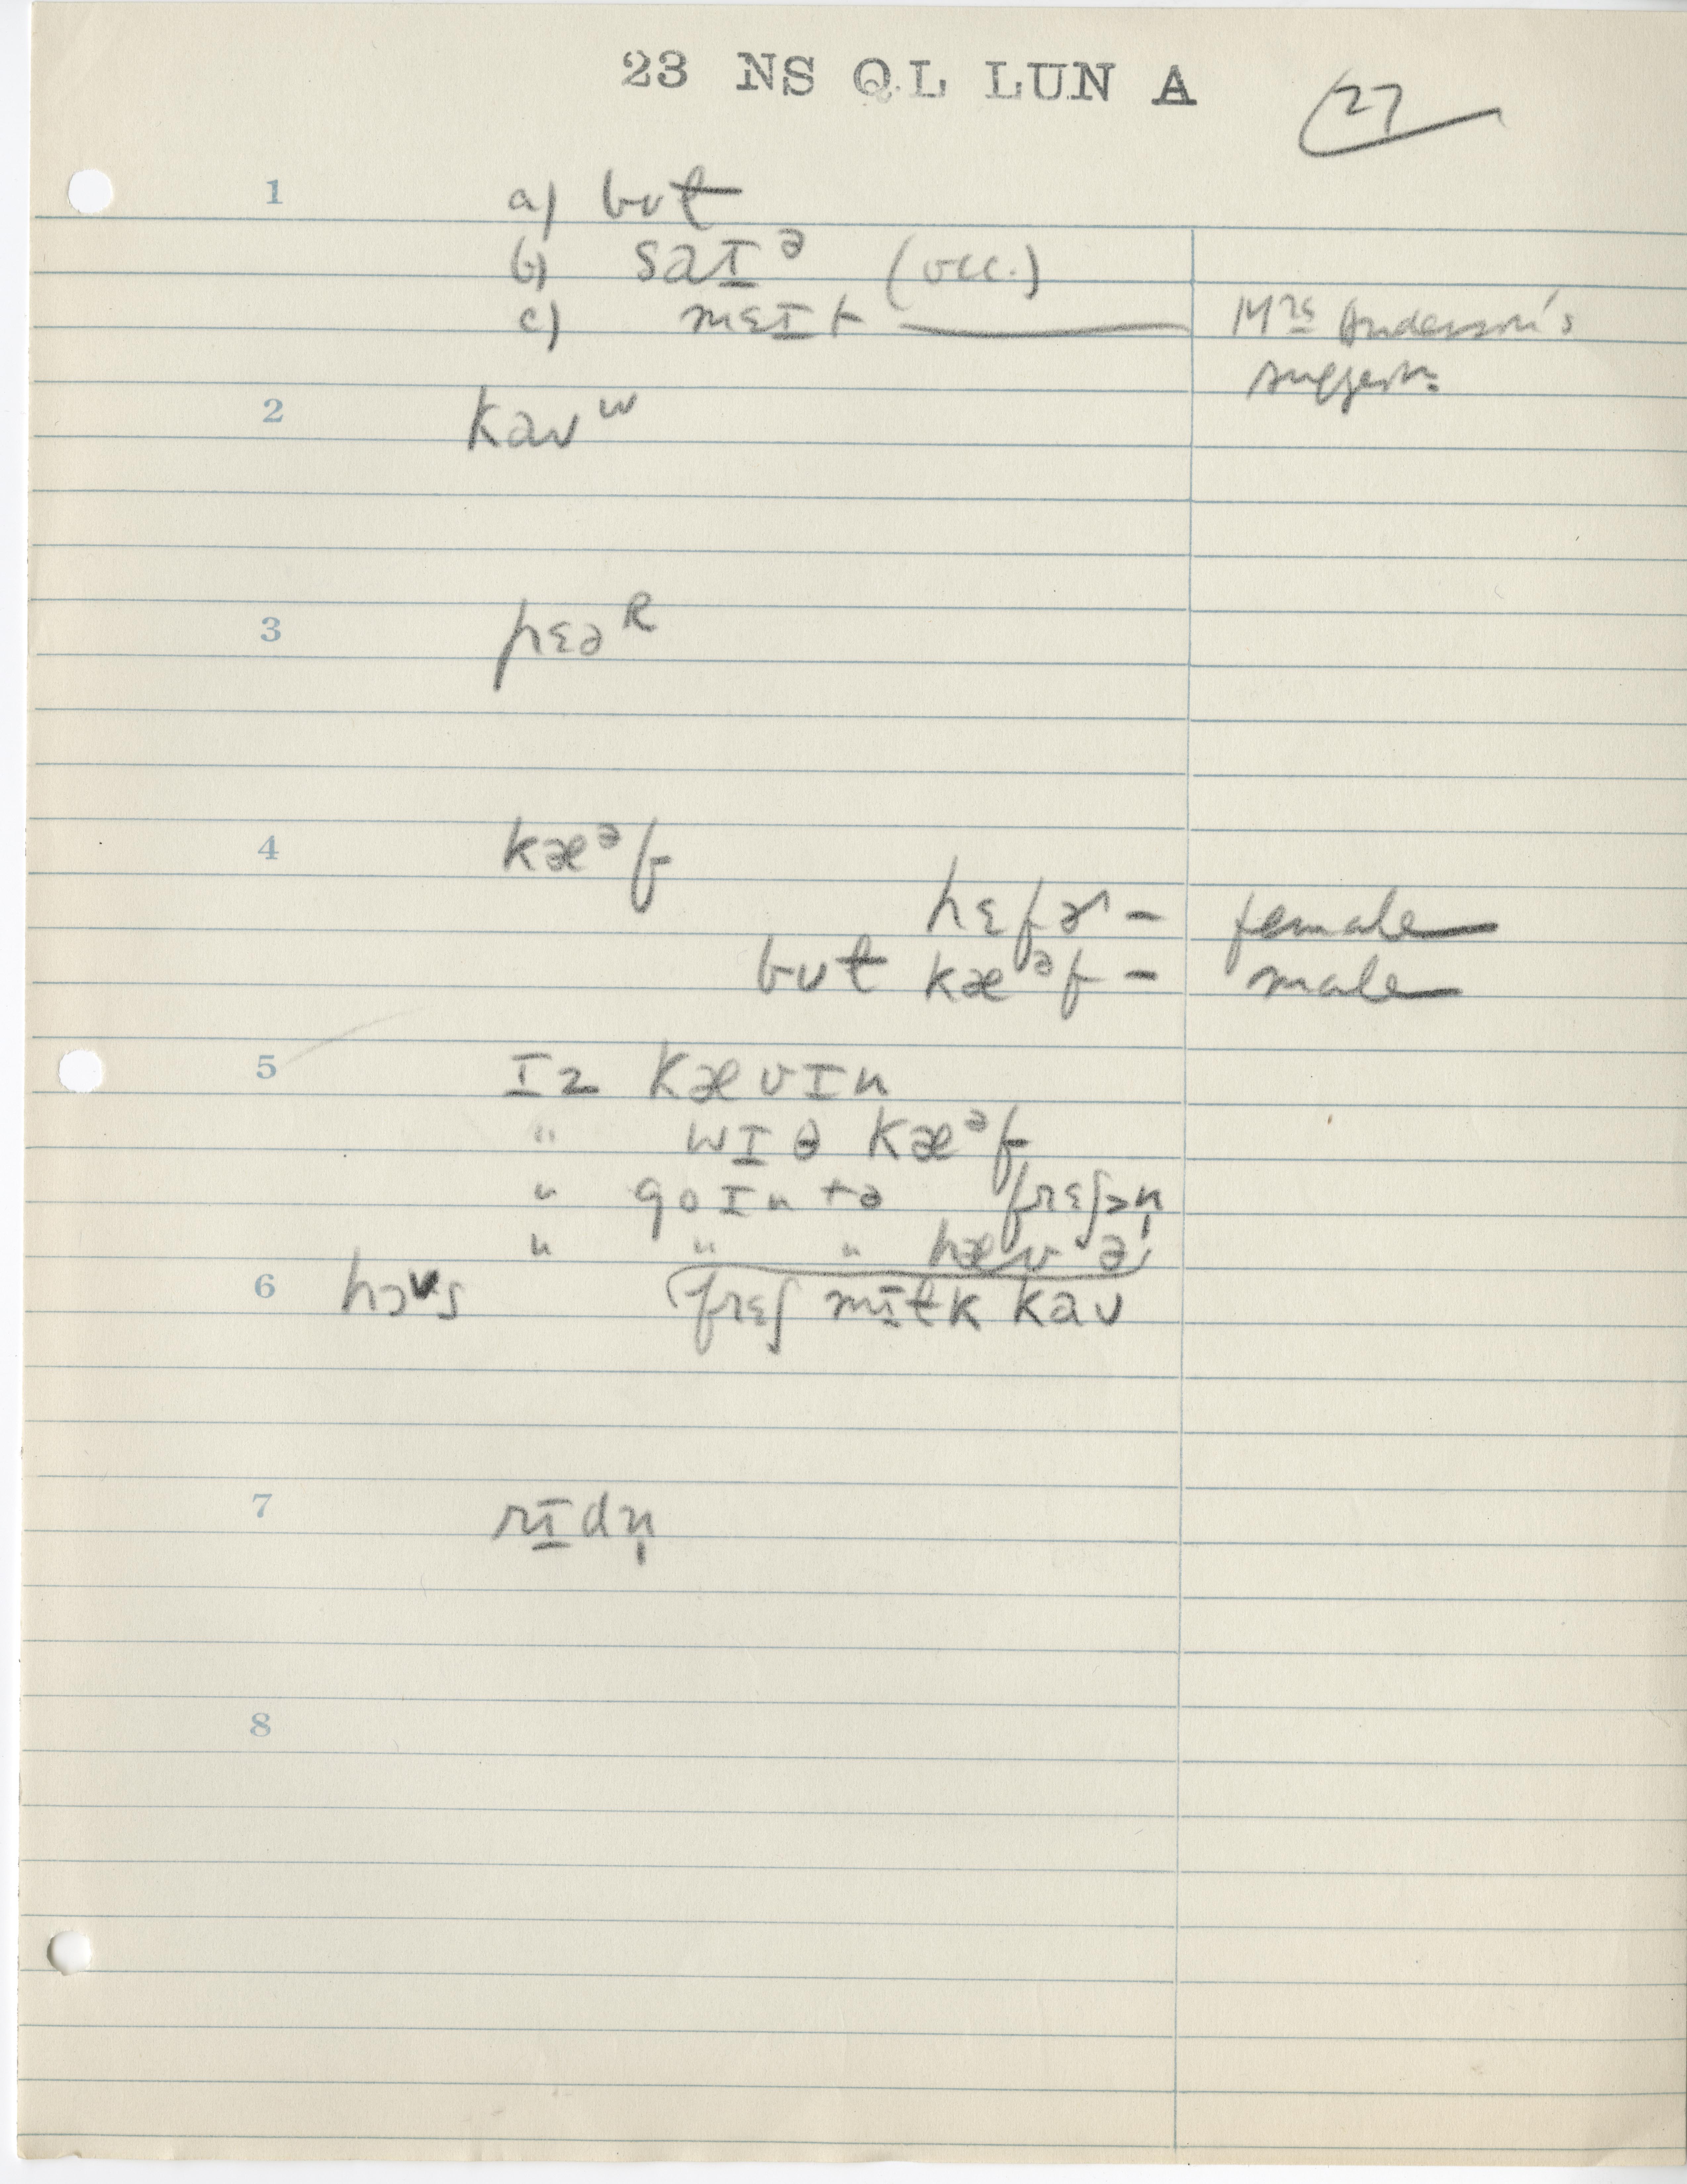 23 NS QL LUN A
27
1 a) bʊɫ
b) saɪᵊ (occ.)
c) mɛɪt Mrs Anderson's
suggestn:
2 kaʊʷ
3 pɛəᴿ
4 kæᵊf
hɛfɚ – female
bʊɫ kæᵊf – male
5 ɪz kævɪn
" wɪθ kæᵊf
" goɪn tə frɛʃən̩
" " " hæv ə
6 hɔʊs frɛʃ mɪɫk kaʊ
7 rɪdn̩
8